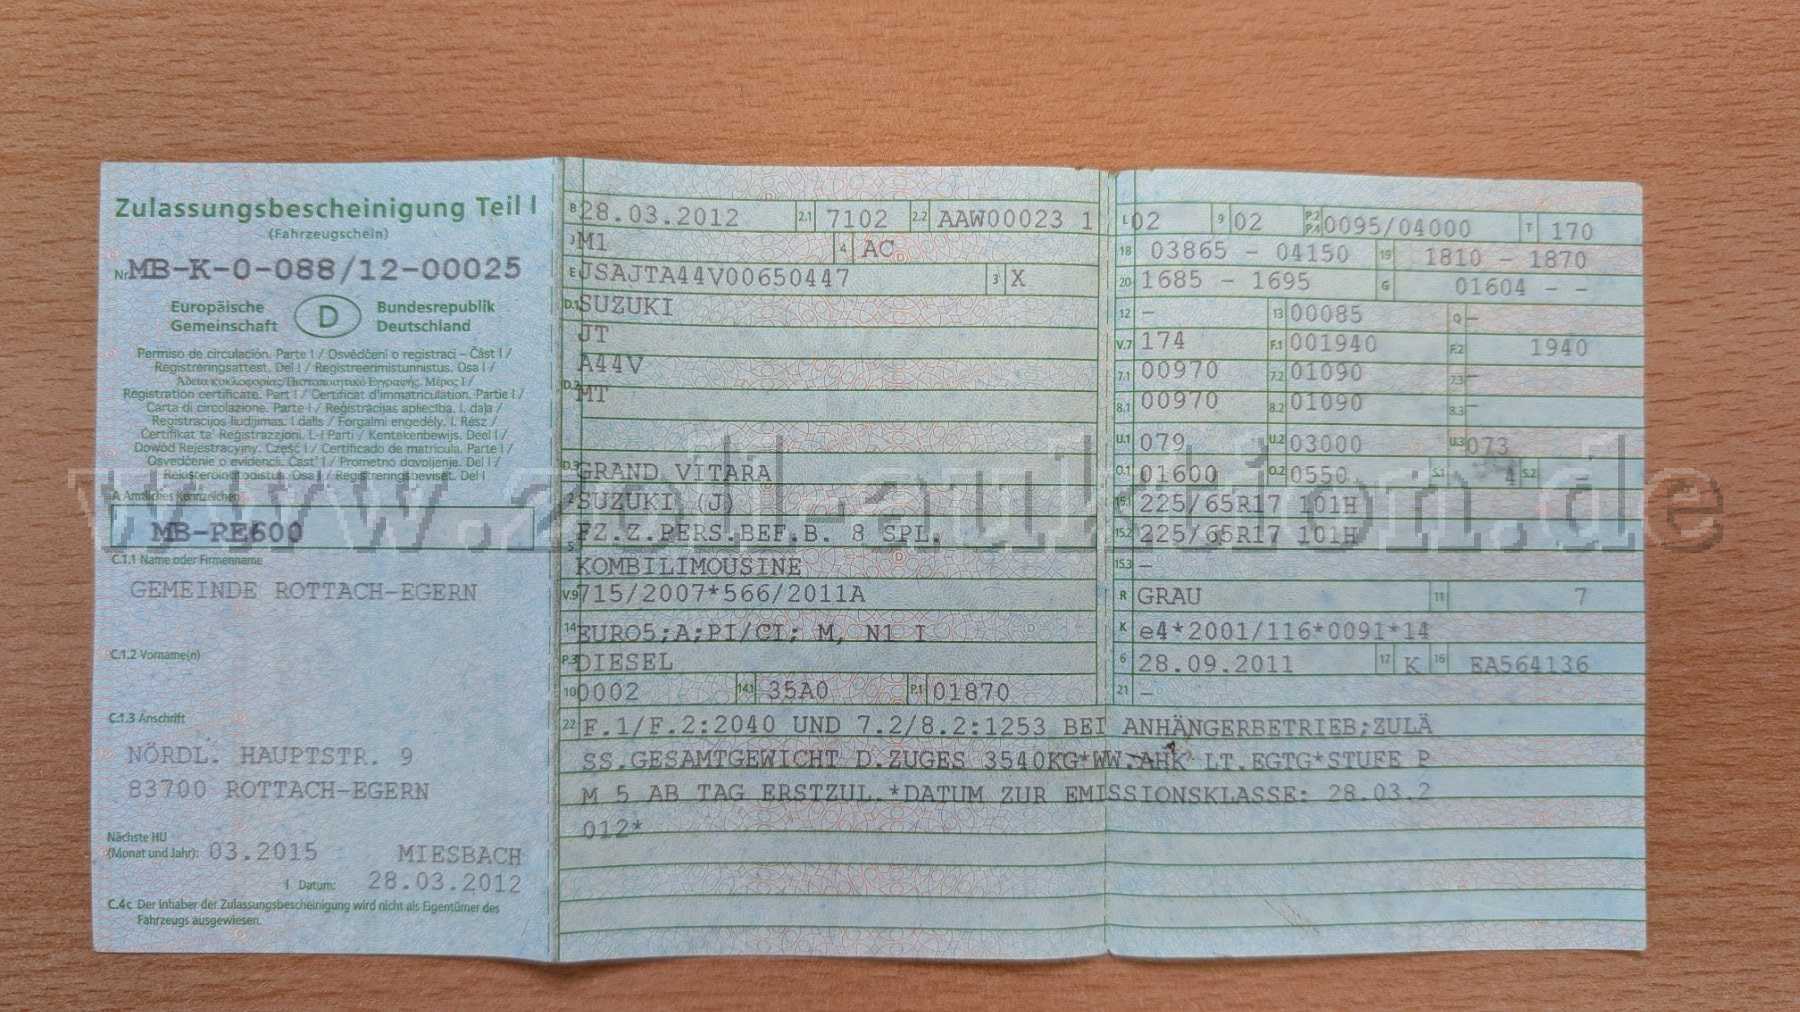 Zulassungsbescheinigung Teil I
(Fahrzeugschein)
Nr. MB-K-0-088/12-00025
Europäische Gemeinschaft
D
Bundesrepublik Deutschland
Permiso de circulación. Parte I / Osvědčení o registraci – Část I /
Registreringsattest. Del I / Registreerimistunnistus. Osa I /
Άδεια κυκλοφορίας/Πιστοποιητικό Εγγραφής. Μέρος I /
Registration certificate. Part I / Certificat d'immatriculation. Partie I /
Carta di circolazione. Parte I / Reģistrācijas apliecība. I. daļa /
Registracijos liudijimas. I dalis / Forgalmi engedély. I. Rész /
Ċertifikat ta' Reġistrazzjoni. L-I Parti / Kentekenbewijs. Deel I /
Dowód Rejestracyjny. Część I / Certificado de matrícula. Parte I /
Osvedčenie o evidencii. Časť I / Prometno dovoljenje. Del I /
Rekisteröintitodistus. Osa I / Registreringsbeviset. Del I
A Amtliches Kennzeichen
MB-PE600
C.1.1 Name oder Firmenname
GEMEINDE ROTTACH-EGERN
C.1.2 Vorname(n)
C.1.3 Anschrift
NÖRDL. HAUPTSTR. 9
83700 ROTTACH-EGERN
Nächste HU
(Monat und Jahr): 03.2015 MIESBACH
I Datum: 28.03.2012
C.4c Der Inhaber der Zulassungsbescheinigung wird nicht als Eigentümer des
Fahrzeugs ausgewiesen.
B 28.03.2012 2.1 7102 2.2 AAW00023 1
J M1 4 AC
E JSAJTA44V00650447 3 X
D.1 SUZUKI
JT
A44V
D.2 MT
D.3 GRAND VITARA
2 SUZUKI (J)
5 FZ.Z.PERS.BEF.B. 8 SPL.
KOMBILIMOUSINE
V.9 715/2007*566/2011A
14 EURO5;A;PI/CI; M, N1 I
P.3 DIESEL
10 0002 14.1 35A0 P.1 01870
L 02 9 02 P.2 P.4 0095/04000 T 170
18 03865 - 04150 19 1810 - 1870
20 1685 - 1695 G 01604 - -
12 - 13 00085 Q -
V.7 174 F.1 001940 F.2 1940
7.1 00970 7.2 01090 7.3 -
8.1 00970 8.2 01090 8.3 -
U.1 079 U.2 03000 U.3 073
O.1 01600 O.2 0550 S.1 4 S.2 -
15.1 225/65R17 101H
15.2 225/65R17 101H
15.3 -
R GRAU 11 7
K e4*2001/116*0091*14
6 28.09.2011 17 K 16 EA564136
21 -
22 F.1/F.2:2040 UND 7.2/8.2:1253 BEI ANHÄNGERBETRIEB;ZULÄ
SS.GESAMTGEWICHT D.ZUGES 3540KG*WW.AHK LT.EGTG*STUFE P
M 5 AB TAG ERSTZUL.*DATUM ZUR EMISSIONSKLASSE: 28.03.2
012*
www.zoll-auktion.de